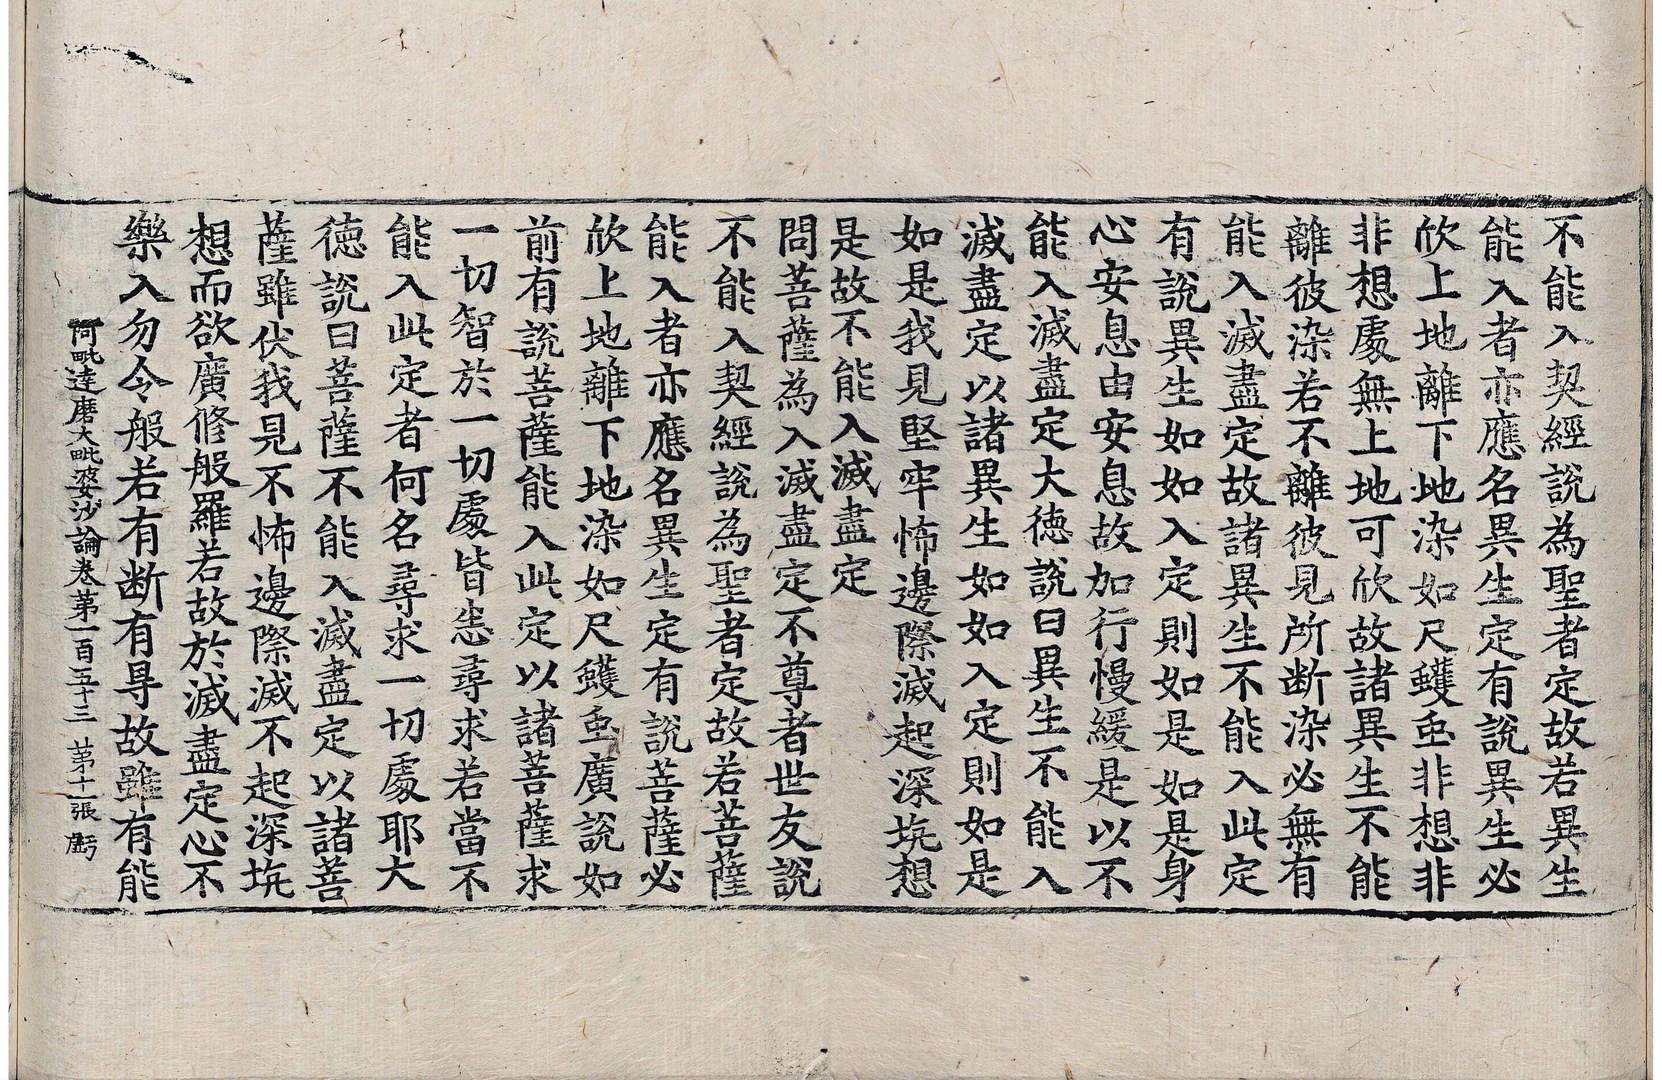 不能入契經說為聖者定故若異生
能入者亦應名異生定有說異生必
欣上地離下地染如尺蠖虫非想非
非想處無上地可欣故諸異生不能
離彼染若不離彼見所断染必無有
能入滅盡定故諸異生不能入此定
有說異生如如入定則如是如是身
心安息由安息故加行慢緩是以不
能入滅盡定大德說曰異生不能入
滅盡定以諸異生如如入定則如是
如是我見堅牢怖邊際滅起深坑想
是故不能入滅盡定
問菩薩為入滅盡定不尊者世友說
不能入契經說為聖者定故若菩薩
能入者亦應名異生定有說菩薩必
欣上地離下地染如尺蠖虫廣說如
前有說菩薩能入此定以諸菩薩求
一切智於一切處皆悉尋求若當不
能入此定者何名尋求一切處耶大
德說曰菩薩不能入滅盡定以諸菩
薩雖伏我見不怖邊際滅不起深坑
想而欲廣修般羅若故於滅盡定心不
樂入勿令般若有断有㝵故雖有能
阿毗達磨大毗婆沙論卷第一百五十三 第十一張 虧